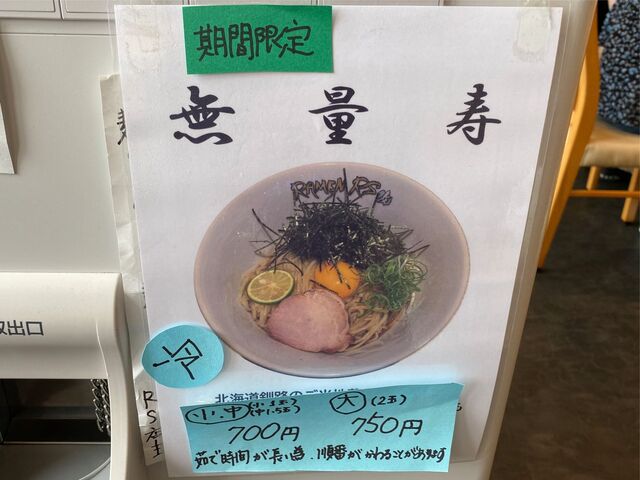 期間限定
無量寿
RAMEN RS
冷
取出口
北海道釧路のご当地
小.中(小1玉)(中1.5玉)
700円
大(2玉)
750円
茹で時間が長い為、順番がかわることがあります